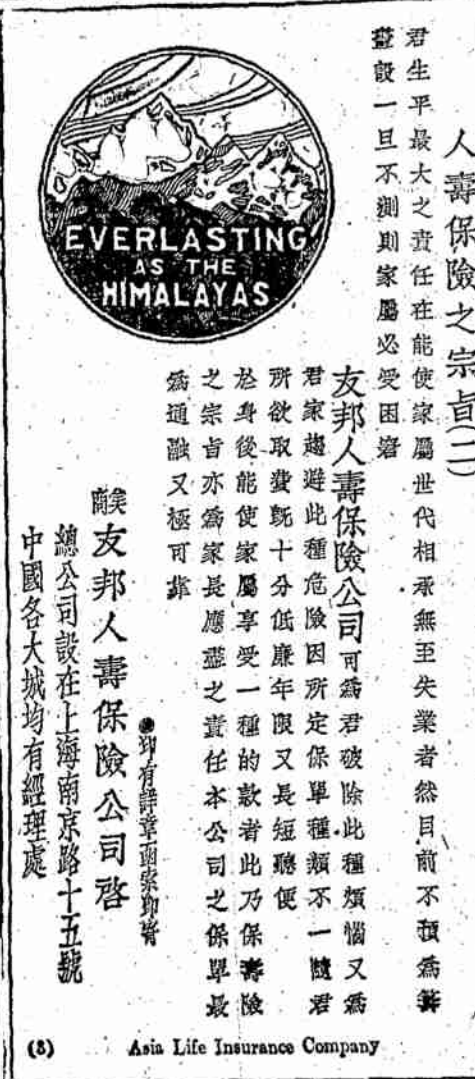 人壽保險之宗旨(二)
君生平最大之責任在能使家屬世代相承無至失業者然目前不預為籌
畫設一旦不測則家屬必受困窘
EVERLASTING
AS THE
HIMALAYAS
友邦人壽保險公司可為君破除此種煩惱又為
君家趨避此種危險因所定保單種類不一隨君
所欲取費旣十分低廉年限又長短聽便
於身後能使家屬享受一種的款者此乃保壽險
之宗旨亦為家長應盡之責任本公司之保單最
為通融又極可靠
●印有詳章函索即寄
美商友邦人壽保險公司啓
總公司設在上海南京路十五號
中國各大城均有經理處
(3) Asia Life Insurance Company